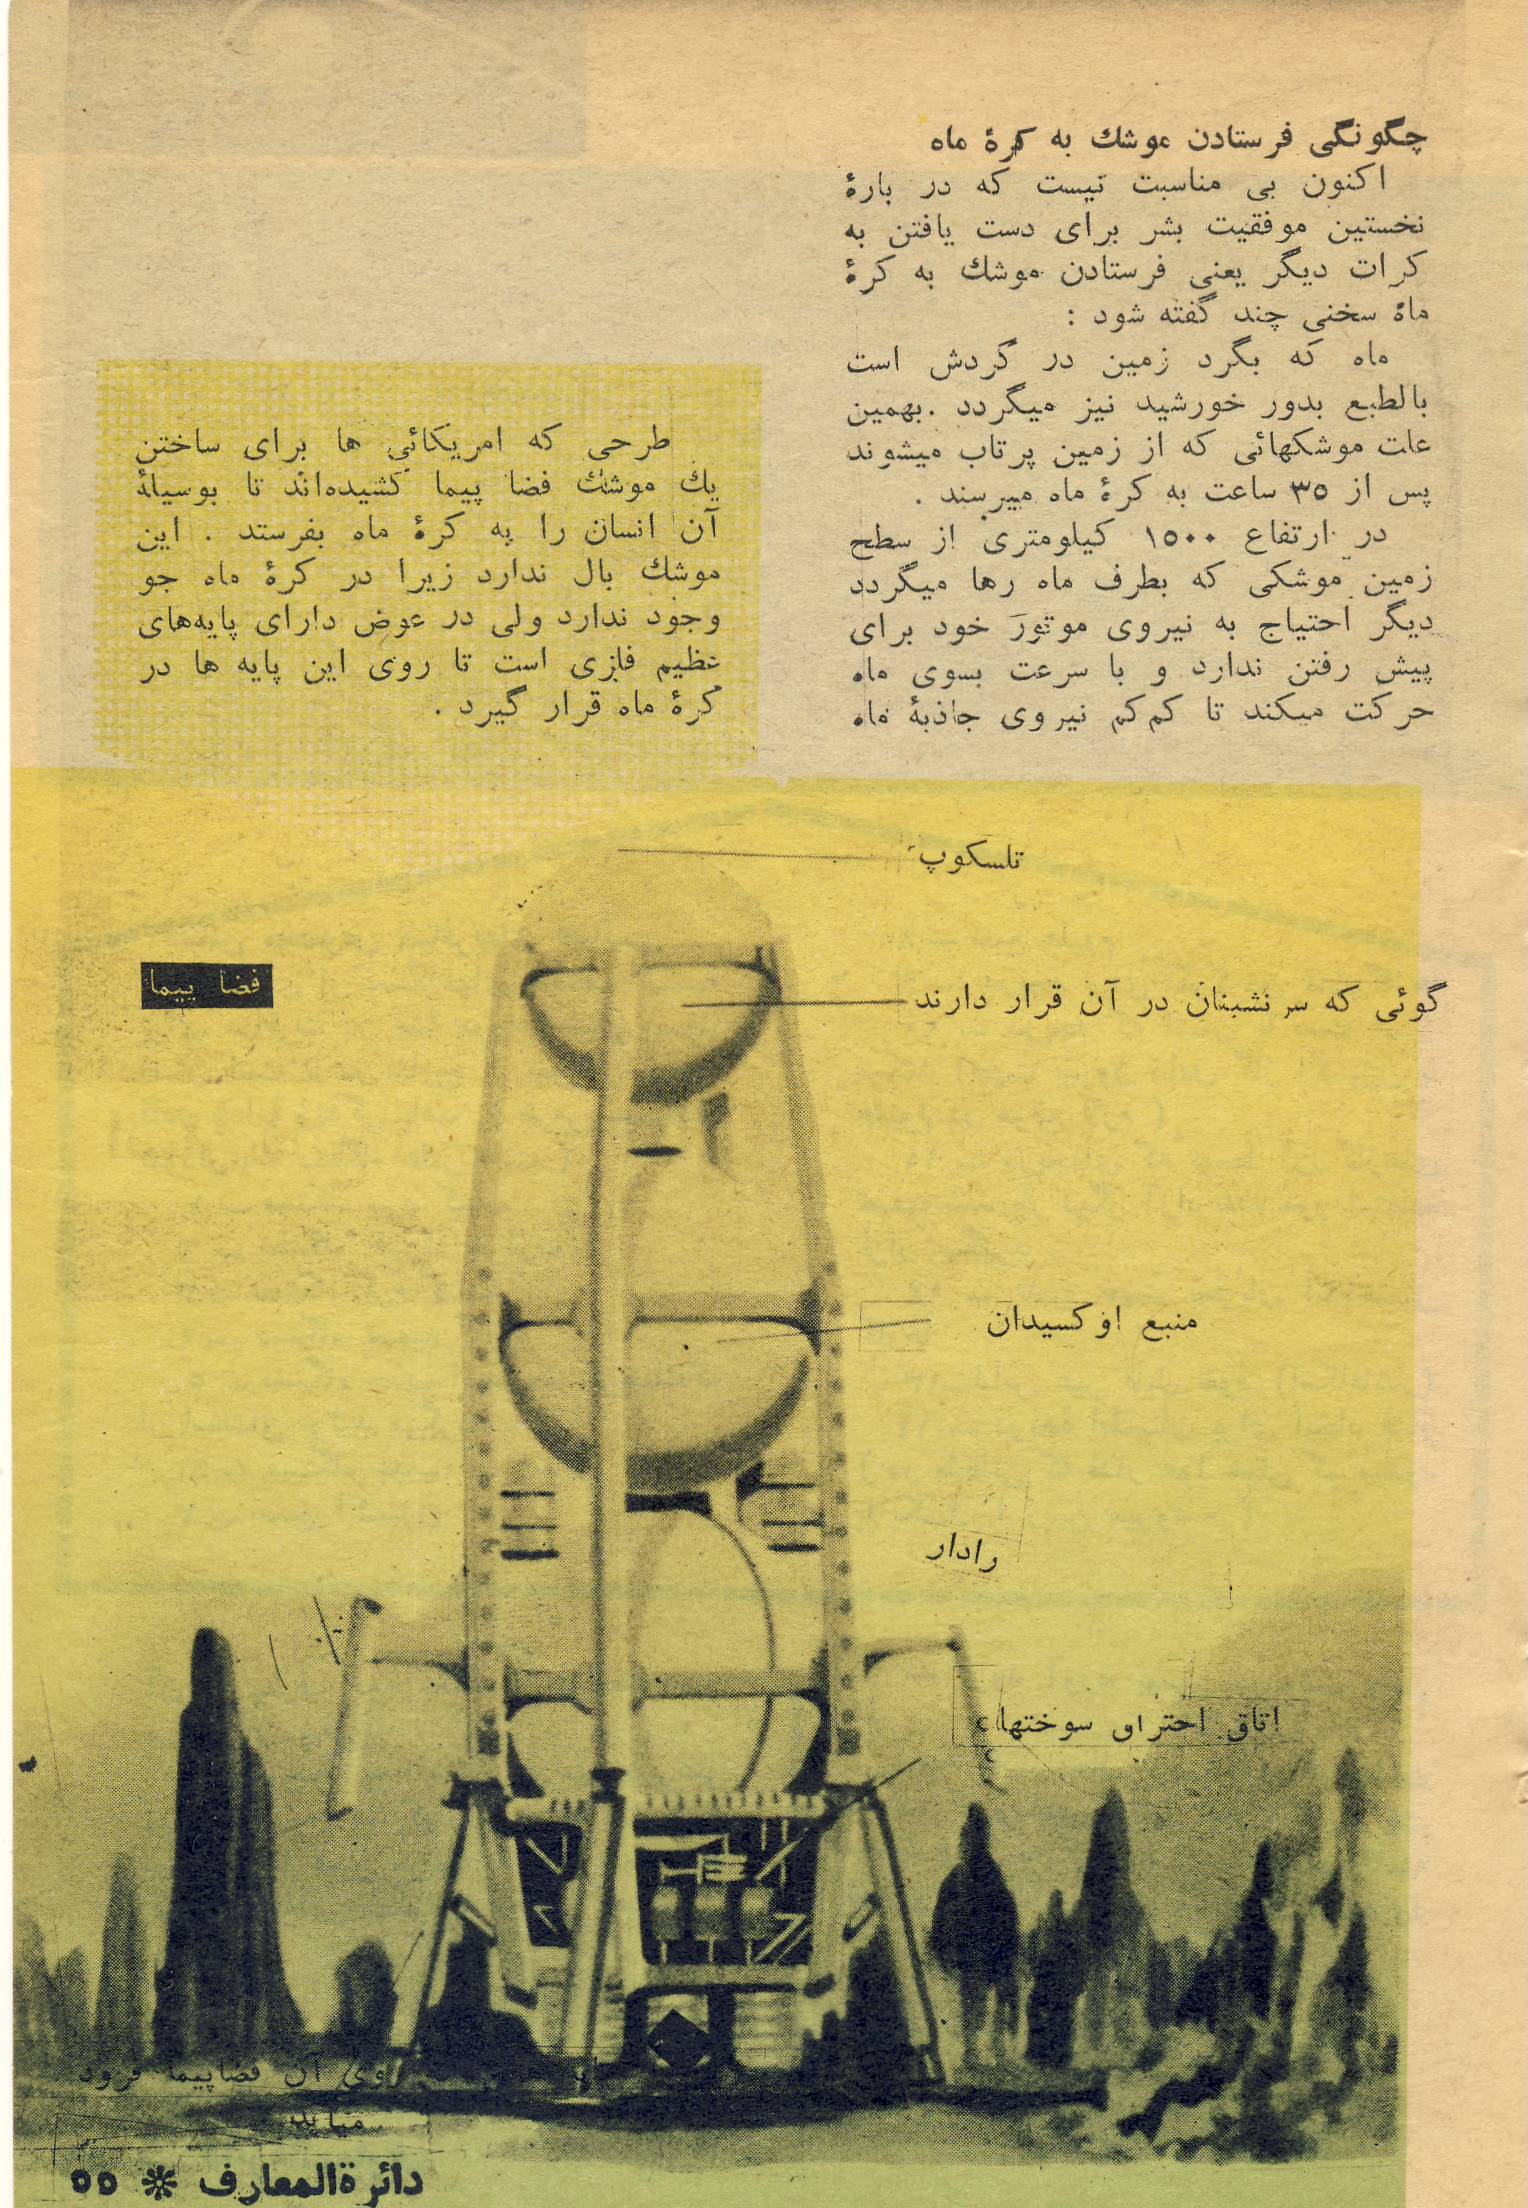 چگونگی فرستادن موشك به کرهٔ ماه
اکنون بی مناسبت نیست که در بارهٔ
نخستین موفقیت بشر برای دست یافتن به
کرات دیگر یعنی فرستادن موشك به کرهٔ
ماهٔ سخنی چند گفته شود :
ماه که بگرد زمین در گردش است
بالطبع بدور خورشید نیز میگردد .بهمین
علت موشکهائی که از زمین پرتاب میشوند
پس از ۳۵ ساعت به کرهٔ ماه میرسند .
در ارتفاع ۱۵۰۰ کیلومتری از سطح
زمین موشکی که بطرف ماه رها میگردد
دیگر احتیاج به نیروی موتور خود برای
پیش رفتن ندارد و با سرعت بسوی ماه
حرکت میکند تا کم‌کم نیروی جاذبهٔ ماه
طرحی که امریکائی ها برای ساختن
یك موشك فضا پیما کشیده‌اند تا بوسیلهٔ
آن انسان را به کرهٔ ماه بفرستد . این
موشك بال ندارد زیرا در کرهٔ ماه جو
وجود ندارد ولی در عوض دارای پایه‌های
عظیم فلزی است تا روی این پایه ها در
کرهٔ ماه قرار گیرد .
تلسکوپ
فضا پیما
گوئی که سرنشینان در آن قرار دارند
منبع اوکسیدان
رادار
اتاق احتراق سوختها
آن فضاپیما فرود
میآید
دائرةالمعارف * ۵۵